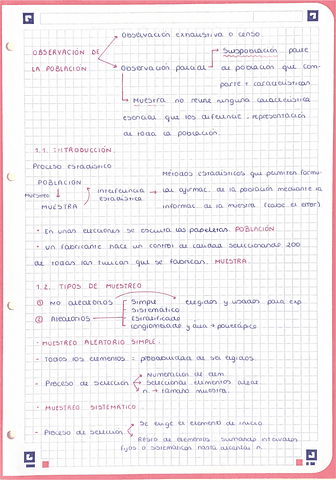 Observación exhaustiva o censo.
OBSERVACIÓN DE
LA POBLACIÓN
Observación parcial
Subpoblación parte
de población que com-
parte + características.
Muestra no reune ninguna característica
esencial que los diferencie, representación
de toda la población.
1.1. INTRODUCCIÓN.
Proceso estadístico
POBLACIÓN
Muestreo
MUESTRA
Inferencia
estadística
Métodos estadísticos que permiten formu-
lar afirmac. de la población mediante la
informac. de la muestra (cabe el error)
· En unas elecciones se escruta las papeletas. POBLACIÓN
· Un fabricante hace un control de calidad seleccionando 200
de todas las tuercas que se fabrican. MUESTRA.
1.2. TIPOS DE MUESTREO
① NO aleatorios
② Aleatorios
Simple
Sistemático
Estratificado
Conglomerado y área → polietápico
elegidos y usados para exp
· MUESTREO ALEATORIO SIMPLE.
- Todos los elementos = probabilidad de ser elegidos.
- Proceso de selección
Numeración de elem
Seleccionar elementos aleat
n → tamaño muestra.
· MUESTREO SISTEMÁTICO.
- Proceso de selección
Se elige el elemento de inicio
Resto de elementos, sumando intervalos
fijos o sistemáticos hasta alcanzar n.